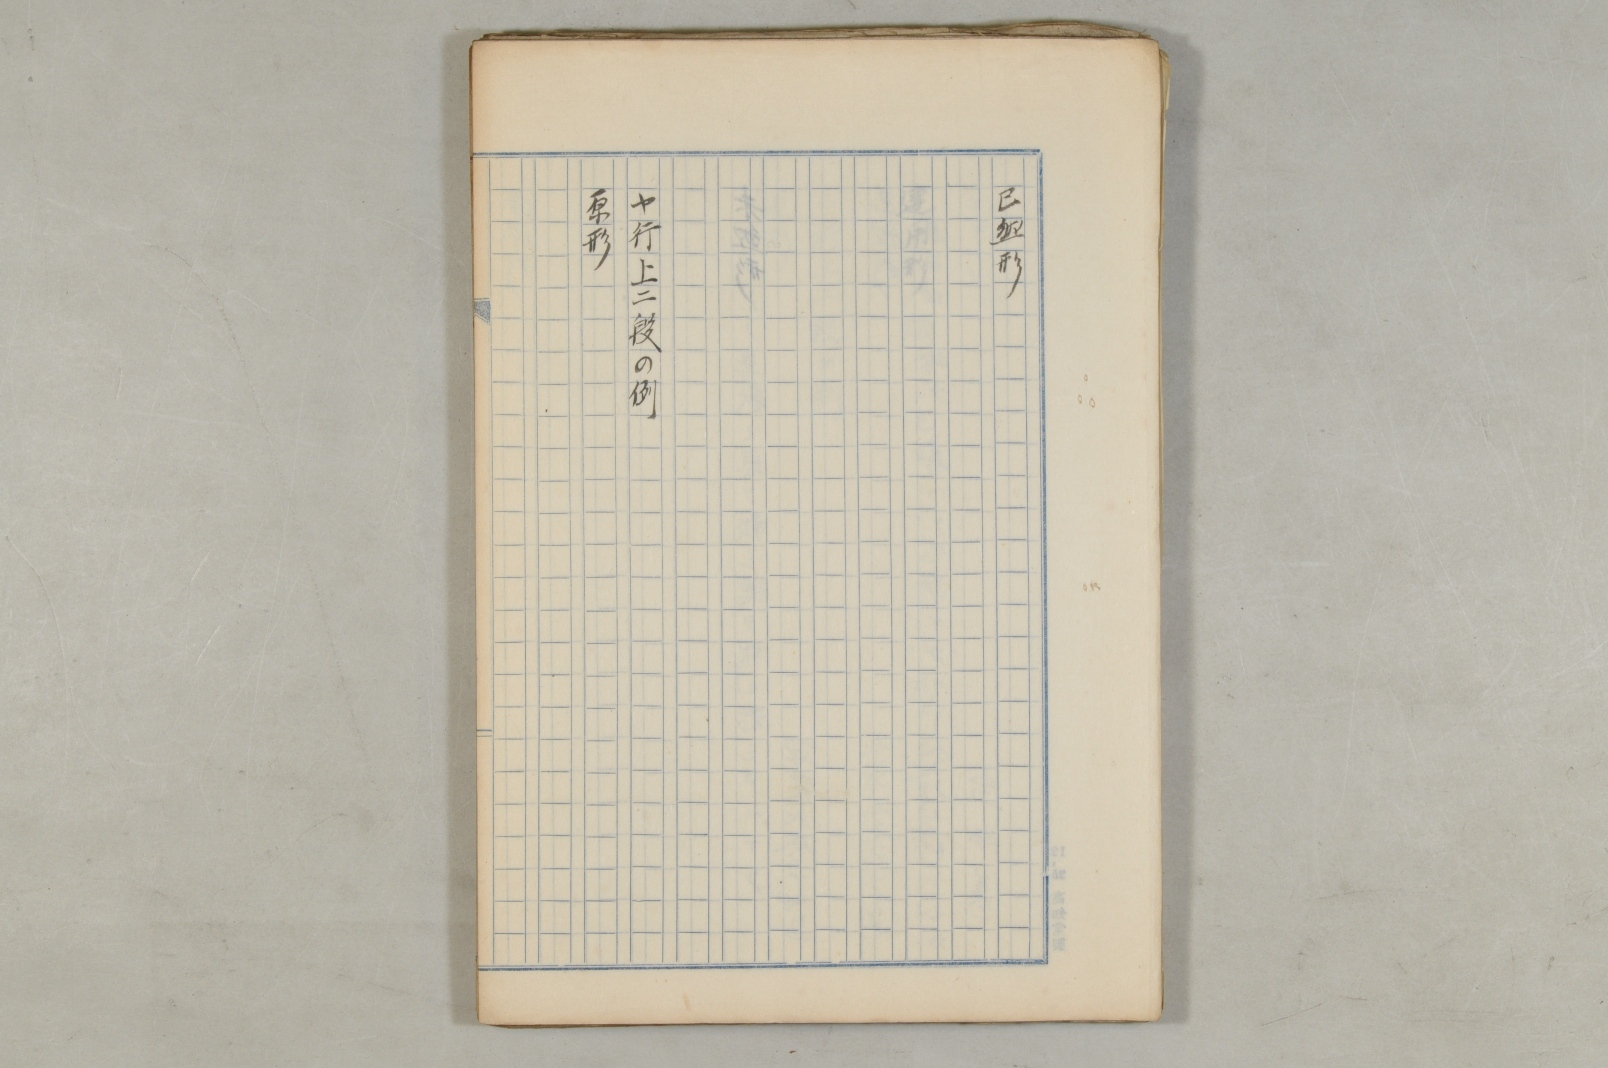 已然形
ヤ行上二段の例
原形